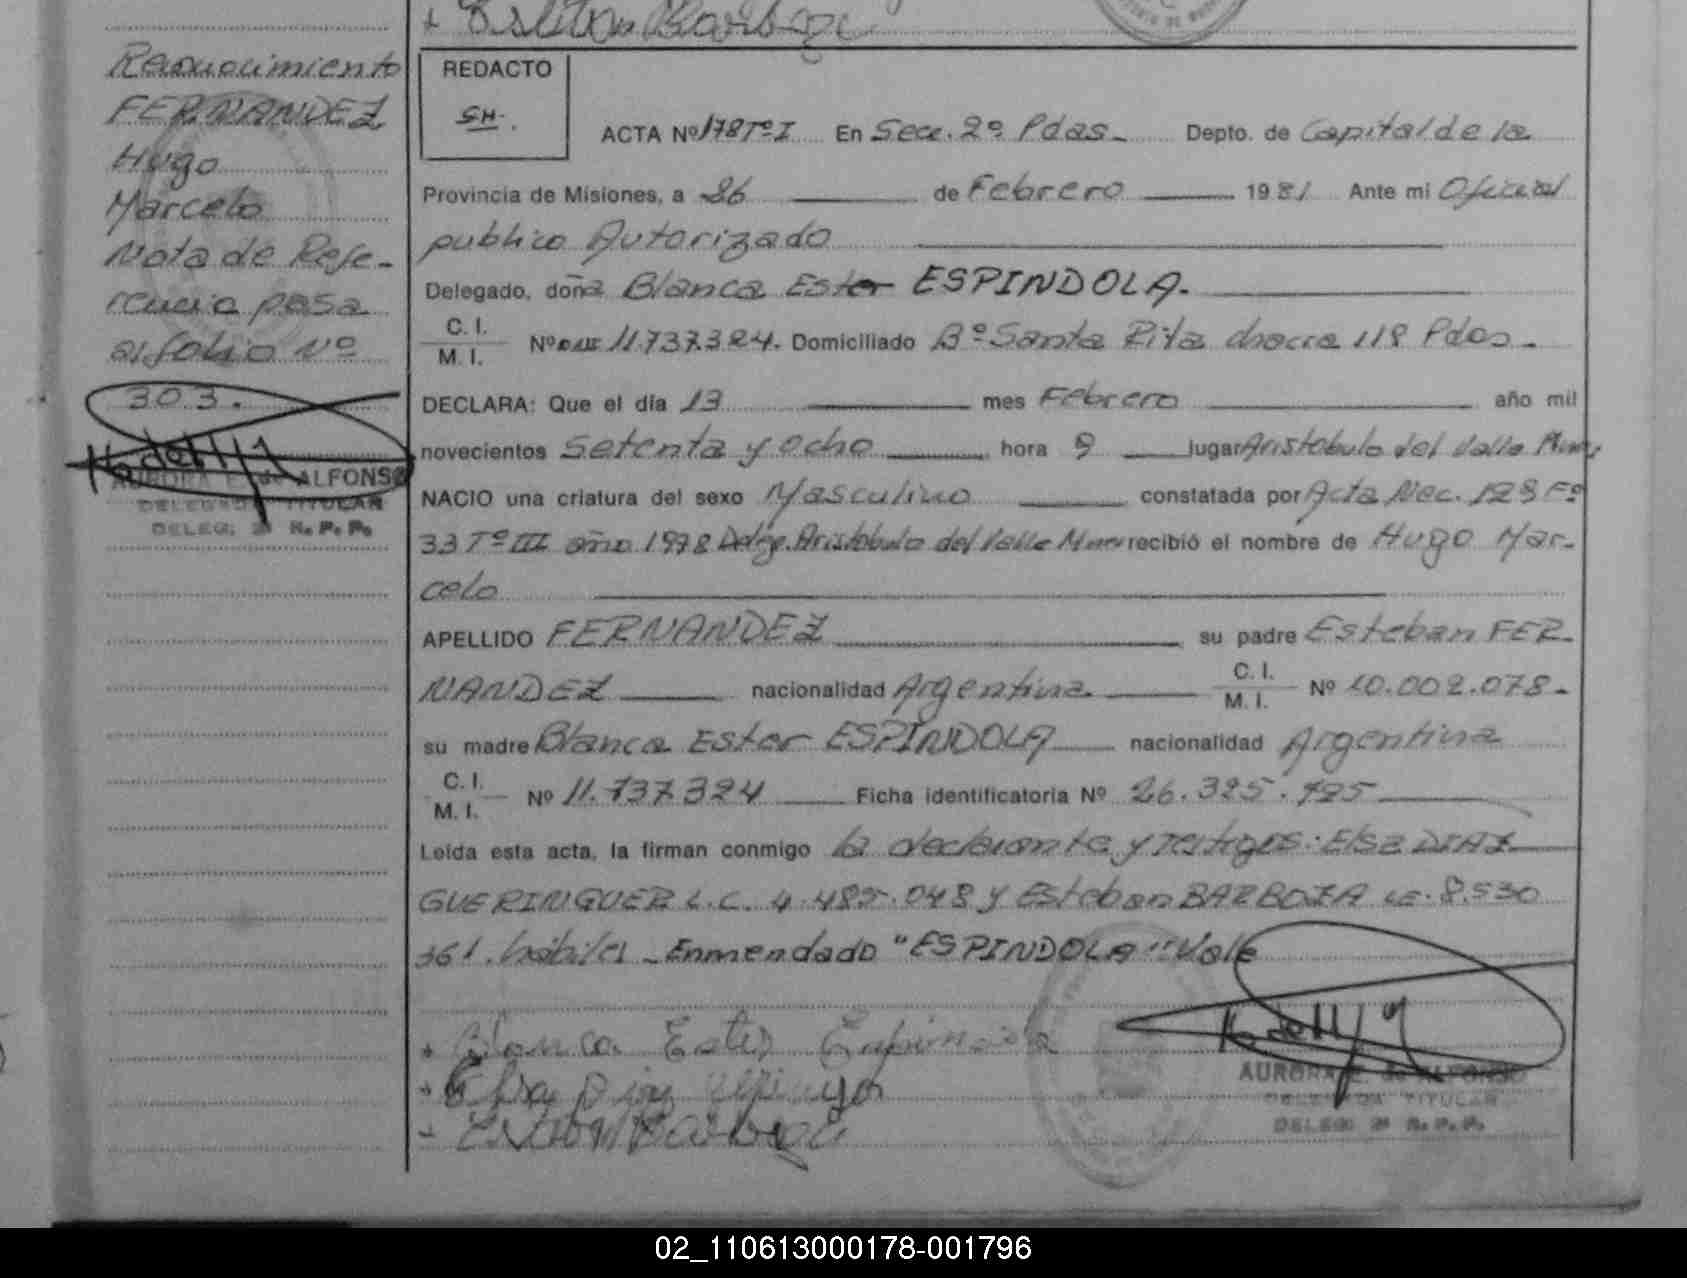 + Esteban Barboza
Reconocimiento
FERNANDEZ
Hugo
Marcelo
Nota de Refe-
rencia pasa
al folio Nº
303.
AURORA E. de ALFONSO
DELEGADA TITULAR
DELEG. 2ª R. P. P.
REDACTO
SH-.
ACTA Nº 178 Tº I En Secc. 2º Pdas. Depto. de Capital de la
Provincia de Misiones, a 26 de Febrero 1981 Ante mi Oficial
publico Autorizado
Delegado, doña Blanca Ester ESPINDOLA.
C. I.
M. I. Nº 11.737.324. Domiciliado Bº Santa Rita chacra 118 Pdas.
DECLARA: Que el día 13 mes Febrero año mil
novecientos Setenta y ocho hora 9 lugar Aristobulo del Valle
NACIO una criatura del sexo Masculino constatada por Acta Nac. 129 Fº
33 Tº III año 1978 Deleg. Aristobulo del Valle recibió el nombre de Hugo Mar-
celo
APELLIDO FERNANDEZ su padre Esteban FER-
NANDEZ nacionalidad Argentina. C. I.
M. I. Nº 10.002.078-
su madre Blanca Ester ESPINDOLA nacionalidad Argentina
C. I.
M. I. Nº 11.737.324 Ficha identificatoria Nº 26.325.725
Leída esta acta, la firman conmigo la declarante y testigos: Elsa DIAZ
GUERINGUER L.C. 4.485.048 y Esteban BARBOZA LE. 8.530
361. hábiles - Enmendado "ESPINDOLA" Vale
+ Blanca Ester Espindola
+ Elsa
- Esteban Barboza
AURORA E. de ALFONSO
DELEGADA TITULAR
DELEG. 2ª R. P. P.
02_110613000178-001796